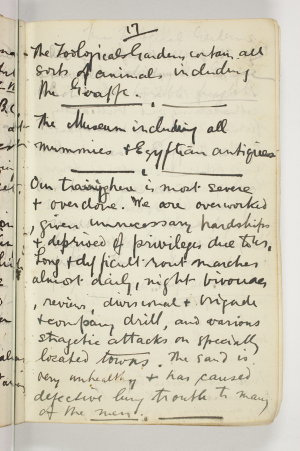 17
The Zoological Gardens contain all
sorts of animals including
the Giraffe.
The Museum including all
mummies & Egyptian antiques
Our training here is most severe
& overdone. We are overworked
, given unnecessary hardships
& deprived of privileges due to us.
Long & difficult rout marches
almost daily, night bivouacs
, review, divisional & brigade
& company drill, and various
stragetic attacks on specially
located towns. The sand is
very unhealthy & has caused
defective lung trouble to many
of the men.